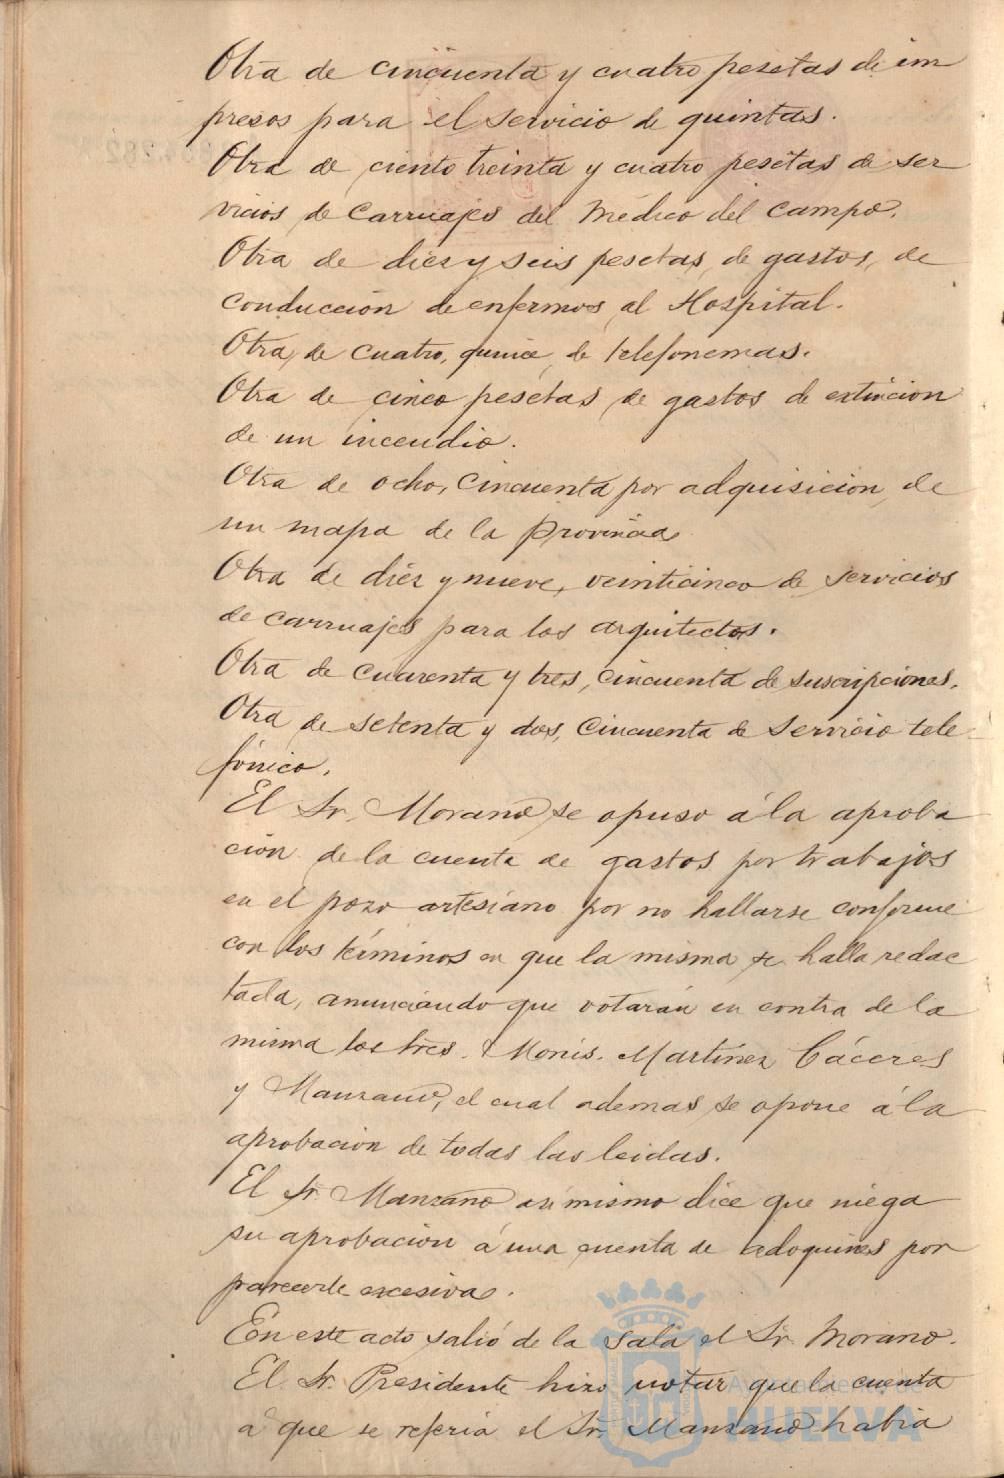 Otra de cincuenta y cuatro pesetas de im
presos para el servicio de quintas.
Otra de ciento treinta y cuatro pesetas de ser
vicios de carruajes del Médico del campo.
Otra de diez y seis pesetas, de gastos, de
conducción de enfermos al Hospital.
Otra, de cuatro, quince, de telefonemas.
Otra de cinco pesetas de gastos de extincion
de un incendio.
Otra de ocho, cincuenta por adquisicion, de
un mapa de la Provincia
Otra de diez y nueve, veinticinco de servicios
de carruajes para los arquitectos.
Otra de cuarenta y tres, cincuenta de suscripciones.
Otra de setenta y dos, cincuenta de servicio tele-
fónico.
El Sr. Morano se opuso á la aproba
ción de la cuenta de gastos por trabajos
en el pozo artesiano por no hallarse conforme
con los términos en que la misma se halla redac
tada, anunciando que votarán en contra de la
misma los tres. Monis. Martinez Cáceres
y Manzano, el cual ademas se opone á la
aprobacion de todas las leidas.
El Sr. Manzano asi mismo dice que niega
su aprobacion á una cuenta de adoquines por
parecerle excesiva.
En este acto salió de la sala el Sr. Morano.
El Sr. Presidente hizo notar que la cuenta
á que se referia el Sr. Manzano habia
Ayuntamiento de
HUELVA